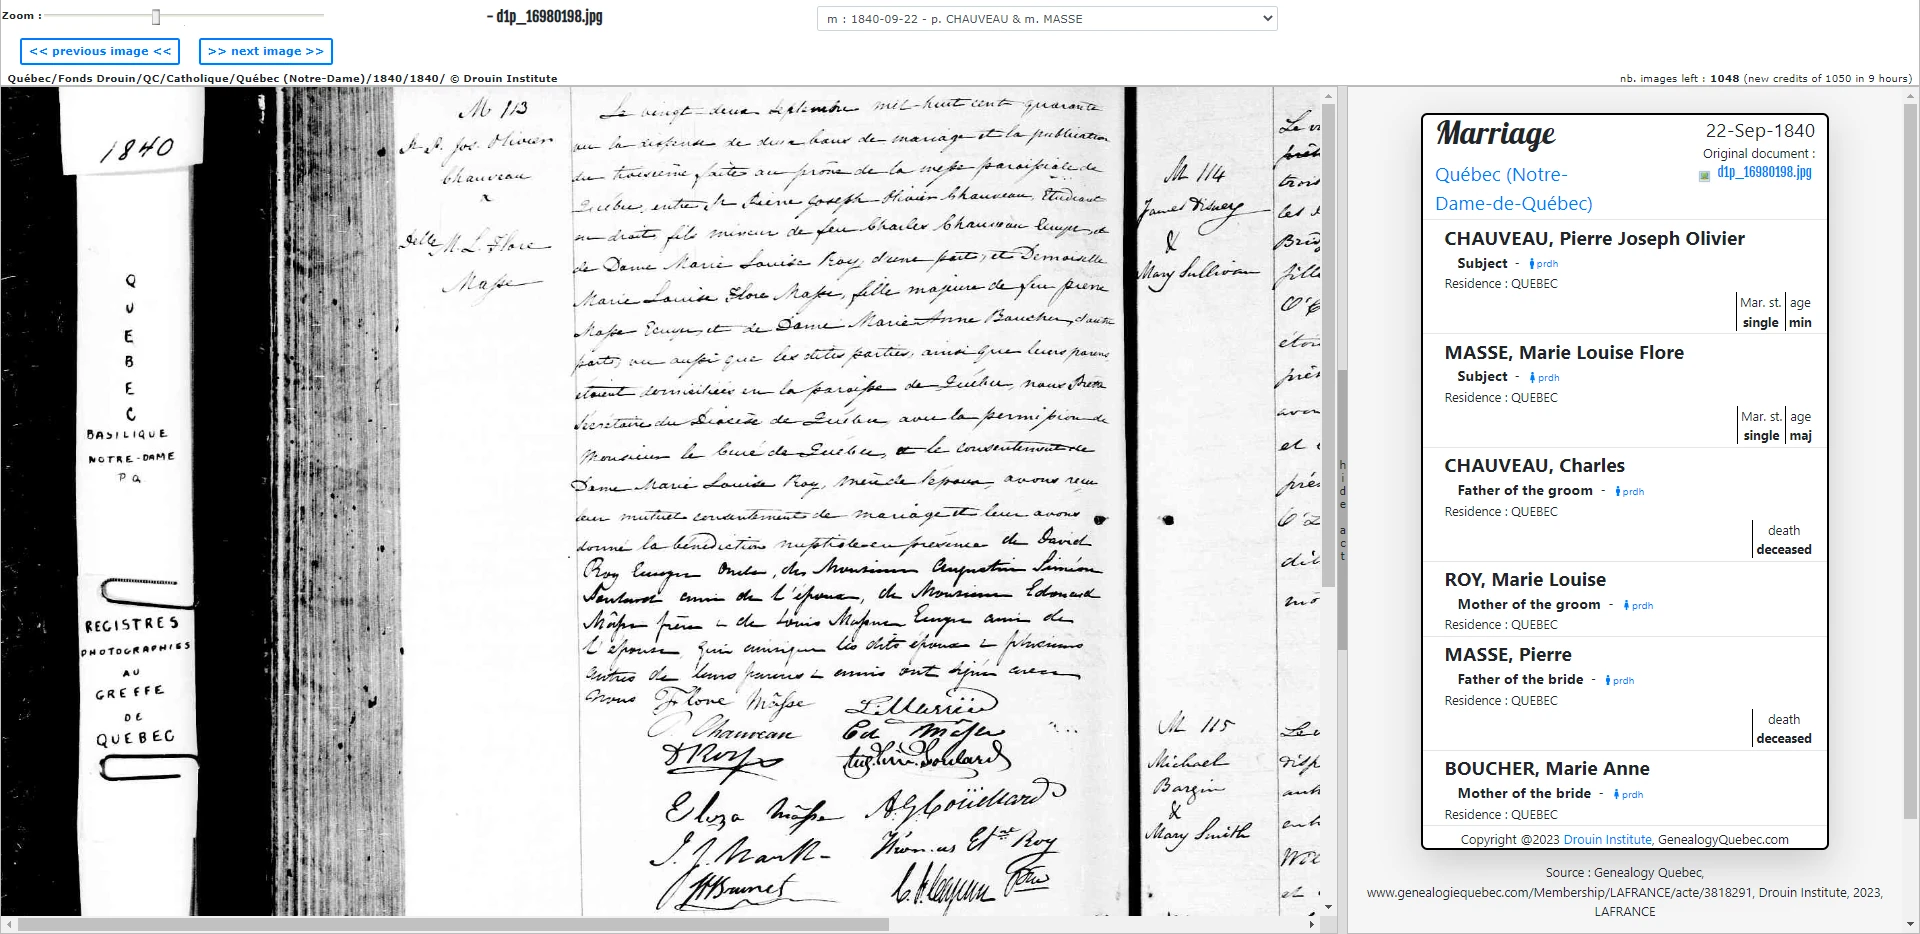 Zoom :
- d1p_16980198.jpg
m : 1840-09-22 - p. CHAUVEAU & m. MASSE
<< previous image <<
>> next image >>
Québec/Fonds Drouin/QC/Catholique/Québec (Notre-Dame)/1840/1840/ © Drouin Institute
nb. images left : 1048 (new credits of 1050 in 9 hours)
1840
QUEBEC
BASILIQUE
NOTRE-DAME
PQ
REGISTRES
PHOTOGRAPHIES
AU
GREFFE
DE
QUEBEC
M 113
Jos. Olivier
Chauveau
&
Delle M. L. Flore
Masse
Le vingt-deux Septembre mil-huit cent quarante
vu la dispense de deux bans de mariage et la publication
du troisième faite au prône de la messe paroissiale de
Québec, entre Mr Pierre Joseph Olivier Chauveau, Etudiant
en droit, fils mineur de feu Charles Chauveau Ecuyer, et
de Dame Marie Louise Roy, d'une part; et Demoiselle
Marie Louise Flore Masse, fille majeure de feu pierre
Masse Ecuyer, et de Dame Marie Anne Boucher, d'autre
part; vu aussi que les dites parties, ainsi que leurs parens
étaient domiciliées en la paroisse de Québec, nous Prêtre
Secrétaire du Diocèse de Québec, avec la permission de
Monsieur le Curé de Québec, et le consentement de
Dame Marie Louise Roy, mère de l'époux, avons reçu
leur mutuel consentement de mariage et leur avons
donné la bénédiction nuptiale en présence de David
Roy Ecuyer Oncle, de Monsieur Augustin Siméon
Soulard ami de l'époux, de Monsieur Edouard
Mâsse frère & de Louis Ecuyer ami de
l'épouse, qui ainsi que les dits époux & plusieurs
autres de leurs parens & amis ont signé avec
nous
Flore Mâsse
P. Chauveau Ed Mâsse
D Roy Soulard
Eliza Mâsse
Thomas Et.ne Roy
J. Brunet Ptre
M 114
James Disney
&
Mary Sullivan
M 115
Michael
Bargin
&
Mary Smith
hide act
Marriage
22-Sep-1840
Original document :
d1p_16980198.jpg
Québec (Notre-
Dame-de-Québec)
CHAUVEAU, Pierre Joseph Olivier
Subject - prdh
Residence : QUEBEC
Mar. st. age
single min
MASSE, Marie Louise Flore
Subject - prdh
Residence : QUEBEC
Mar. st. age
single maj
CHAUVEAU, Charles
Father of the groom - prdh
Residence : QUEBEC
death
deceased
ROY, Marie Louise
Mother of the groom - prdh
Residence : QUEBEC
MASSE, Pierre
Father of the bride - prdh
Residence : QUEBEC
death
deceased
BOUCHER, Marie Anne
Mother of the bride - prdh
Residence : QUEBEC
Copyright @2023 Drouin Institute, GenealogyQuebec.com
Source : Genealogy Quebec,
www.genealogiequebec.com/Membership/LAFRANCE/acte/3818291, Drouin Institute, 2023,
LAFRANCE